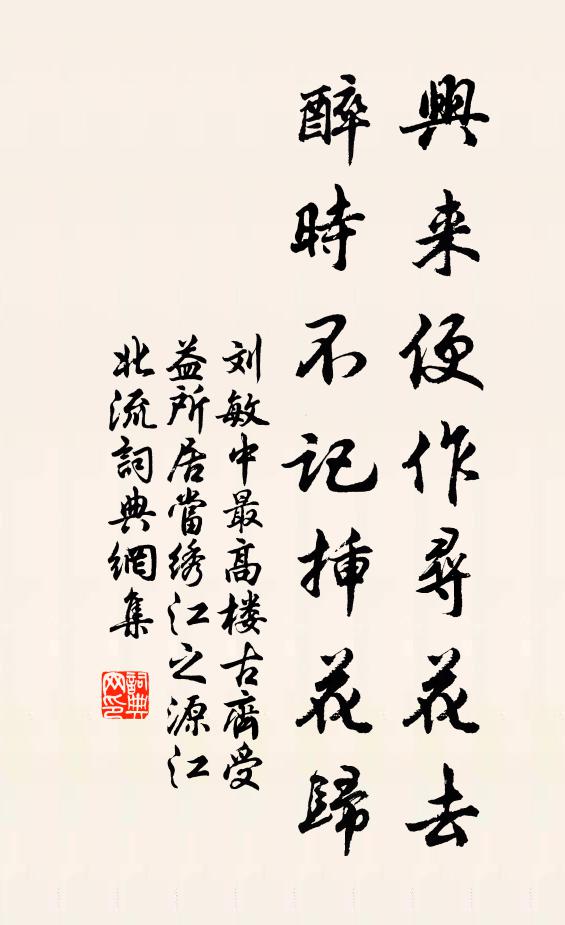 興来便作尋花去
醉時不记挿花歸
刘敏中最高楼古齊受
益所居當绣江之源江
北流詞典網集
詞典
网印